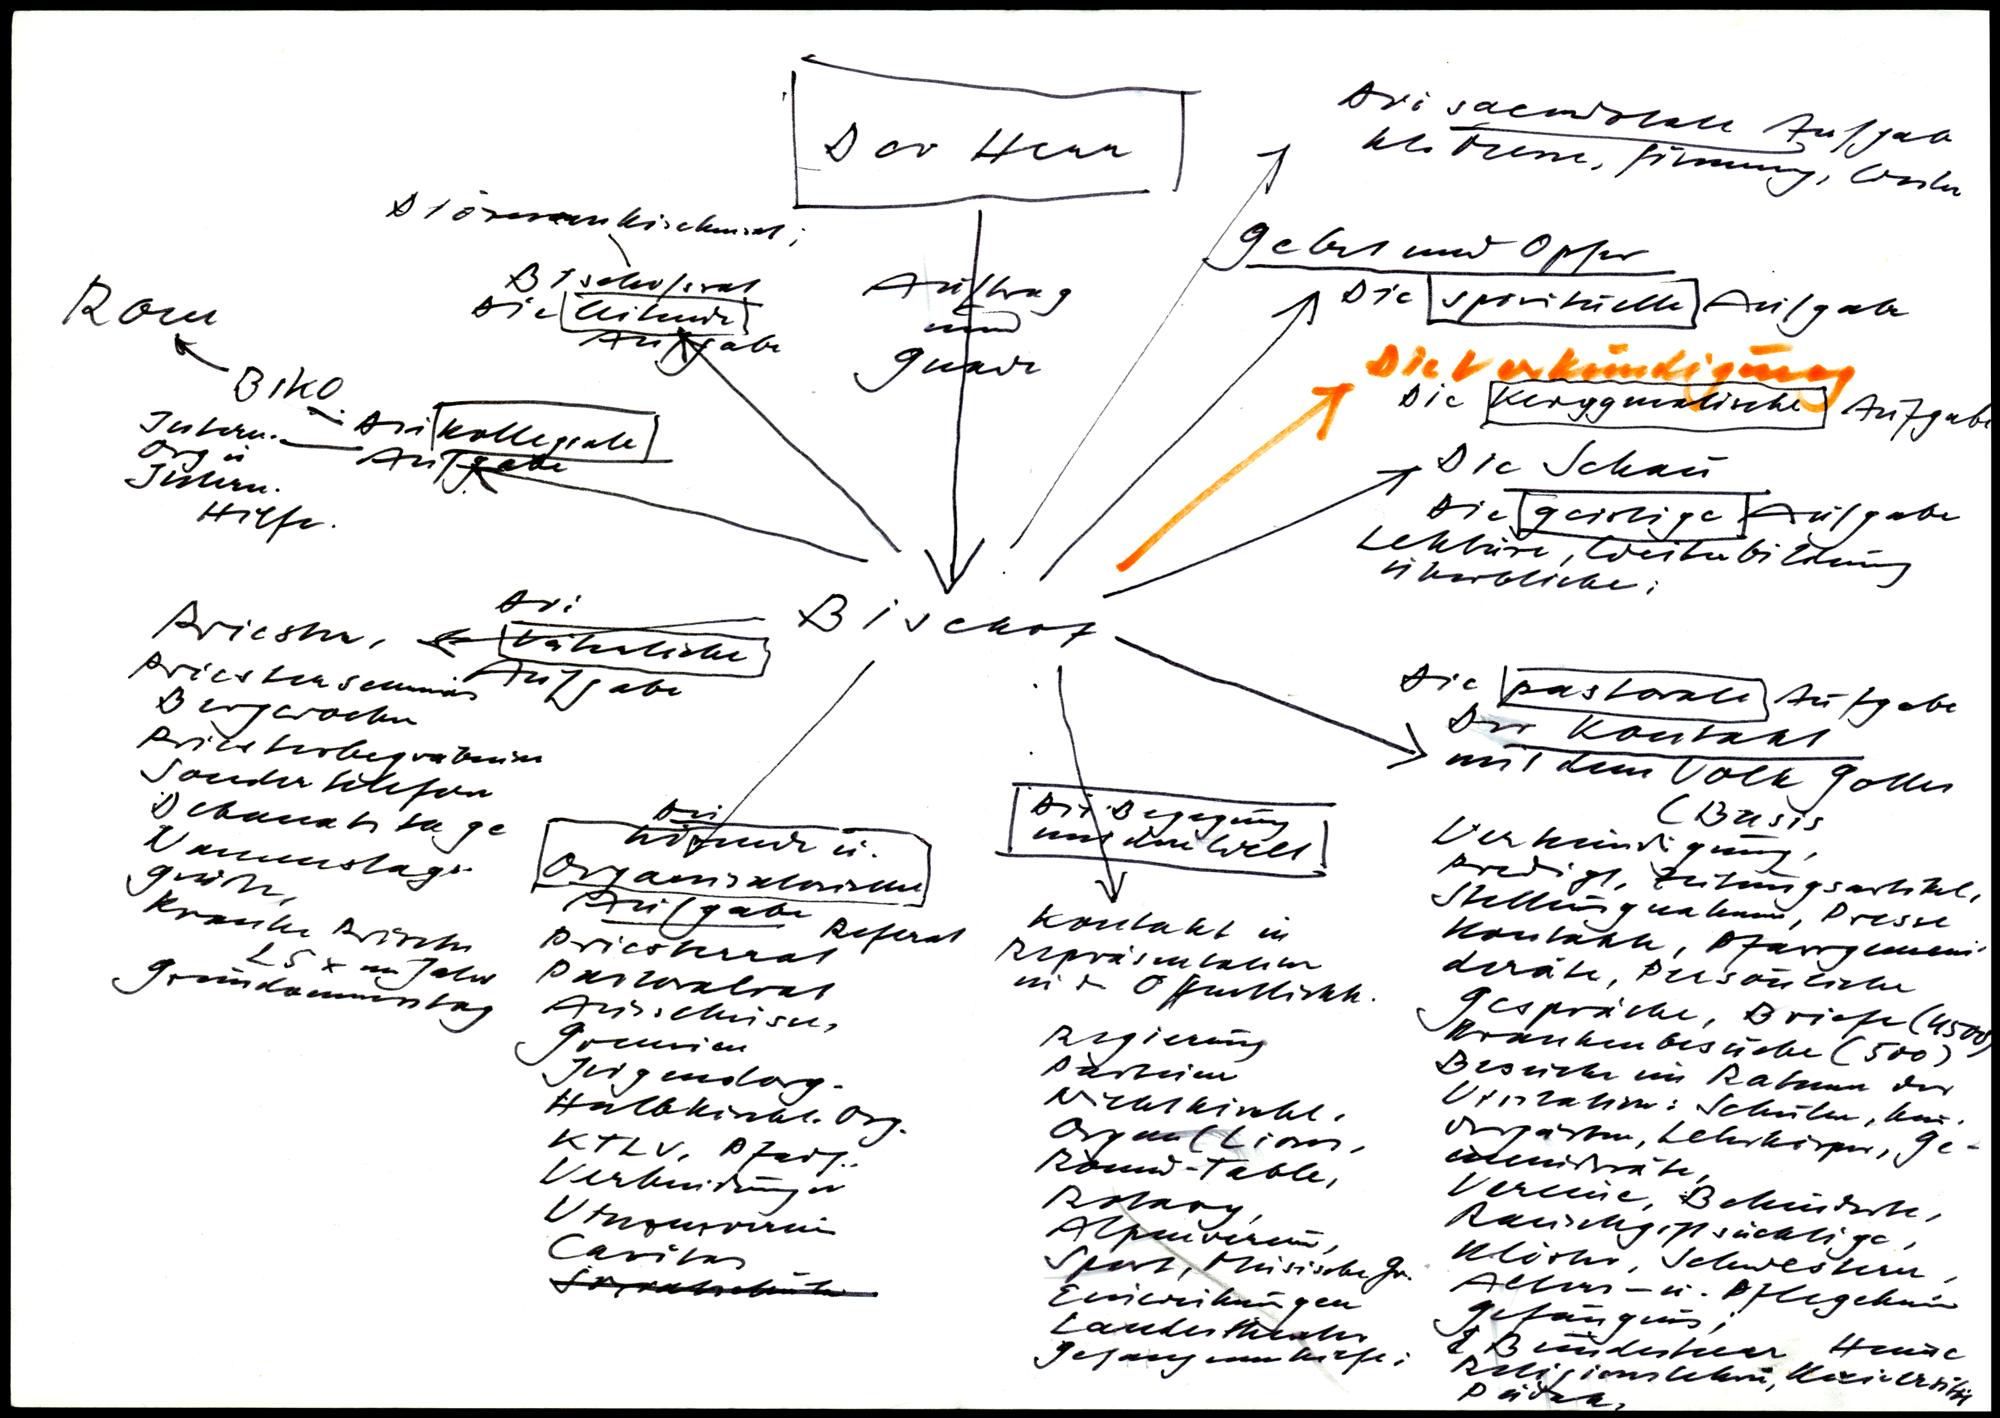 Der Herr
Auftrag
und
Gnade
Bischof
Die sacerdotale Aufgabe
Messe, Firmung, Weihe
Gebet und Opfer
Die spirituelle Aufgabe
Die Verkündigung
Die kerygmatische Aufgabe
Die Schau
Die geistige Aufgabe
Lektüre, Weiterbildung
Überblicke;
Die pastorale Aufgabe
Der Kontakt
mit dem Volk Gottes
(Basis
Verkündigung,
Predigt, Zeitungsartikel,
Stellungnahmen, Presse
Kontakte, Pfarrgemein
deräte, Persönliche
Gespräche, Briefe (4500)
Krankenbesuche (500)
Besuche im Rahmen der
Visitation: Schulen, Kin-
dergärten, Lehrkörper, Ge-
meinderäte,
Vereine, Behinderte,
Rauschgiftsüchtige,
Klöster, Schwestern,
Alters- u. Pflegeheime
Gefängnis;
Bundesheer
Religionslehrer, Universität
Die Begegnung
mit der Welt
Kontakt und
Repräsentation
in d. Öffentlichk.
Regierung
Parteien
Nichtkirchl.
Organ (Lions,
Round-Table,
Rotary,
Alpenverein,
Sport, Musische Gr.
Einweihungen
Landestheater
Gefangenenhilfe;
Die
hörende u.
Organisatorische
Aufgabe
Referat
Priesterrat
Pastoralrat
Ausschüsse,
Gremien
Jugendorg.
Halbkirchl. Org.
KTLV, Pfadf.,
Verbindungen
Caritas
Die
väterliche
Aufgabe
Priester,
Priesterseminar
Bergwochen
Priesterbegräbnisse
Sondertelefon
Dekanatstage
Namenstags-
grüße,
Kranke Priester
25 x im Jahr
Gründonnerstag
Die kollegiale
Aufgabe
BIKO
Rom
Intern.
Org u
Intern.
Hilfe.
Diözesankirchenrat;
Bischofsrat
Die leitende
Aufgabe